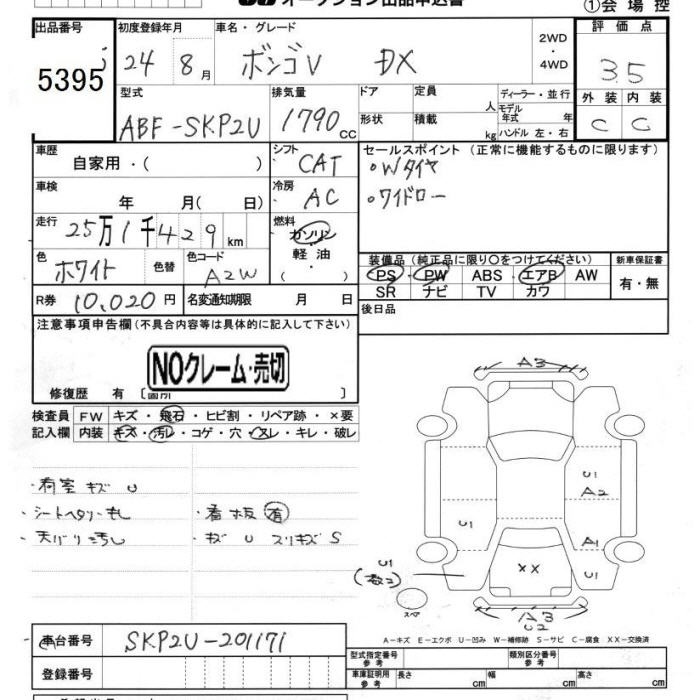 オークション出品申込書
①会場控
出品番号
5395
初度登録年月
24 8月
車名・グレード
ボンゴV DX
2WD・4WD
評価点
3.5
外装 内装
C C
型式
ABF-SKP2U
排気量
1790cc
ドア
形状
定員 人
積載 kg
ディーラー・並行
モデル年式 年
ハンドル 左・右
車歴
自家用・( )
シフト
CAT
セールスポイント (正常に機能するものに限ります)
・Wタイヤ
・ワイドロー
車検
年 月( 日)
冷房
AC
走行
25万1千429km
燃料
ガソリン・軽油・( )
色
ホワイト
色替
色コード
A2W
装備品 (純正品に限り○をつけてください)
PS・PW ABS・エアB AW
SR ナビ TV カワ
新車保証書
有・無
R券 10,020円
名変通知期限 月 日
後日品
注意事項申告欄(不具合内容等は具体的に記入して下さい)
NOクレーム・売切
修復歴 有〔箇所 〕
検査員記入欄
FW キズ・飛石・ヒビ割・リペア跡・×要
内装 キズ・汚レ・コゲ・穴・スレ・キレ・破レ
・荷室 キズ U
・シートヘタリ
・看板 有
・天バリ汚レ
・キズ U スリキズ S
A3
U1
A2
U1
A1
U1
U1
××
A3
C2
スペア
A-キズ E-エクボ U-凹み W-補修跡 S-サビ C-腐食 XX-交換済
車台番号
SKP2U-201171
型式指定番号 参考
類別区分番号 参考
登録番号
車庫証明用 参考
長さ cm 幅 cm 高さ cm